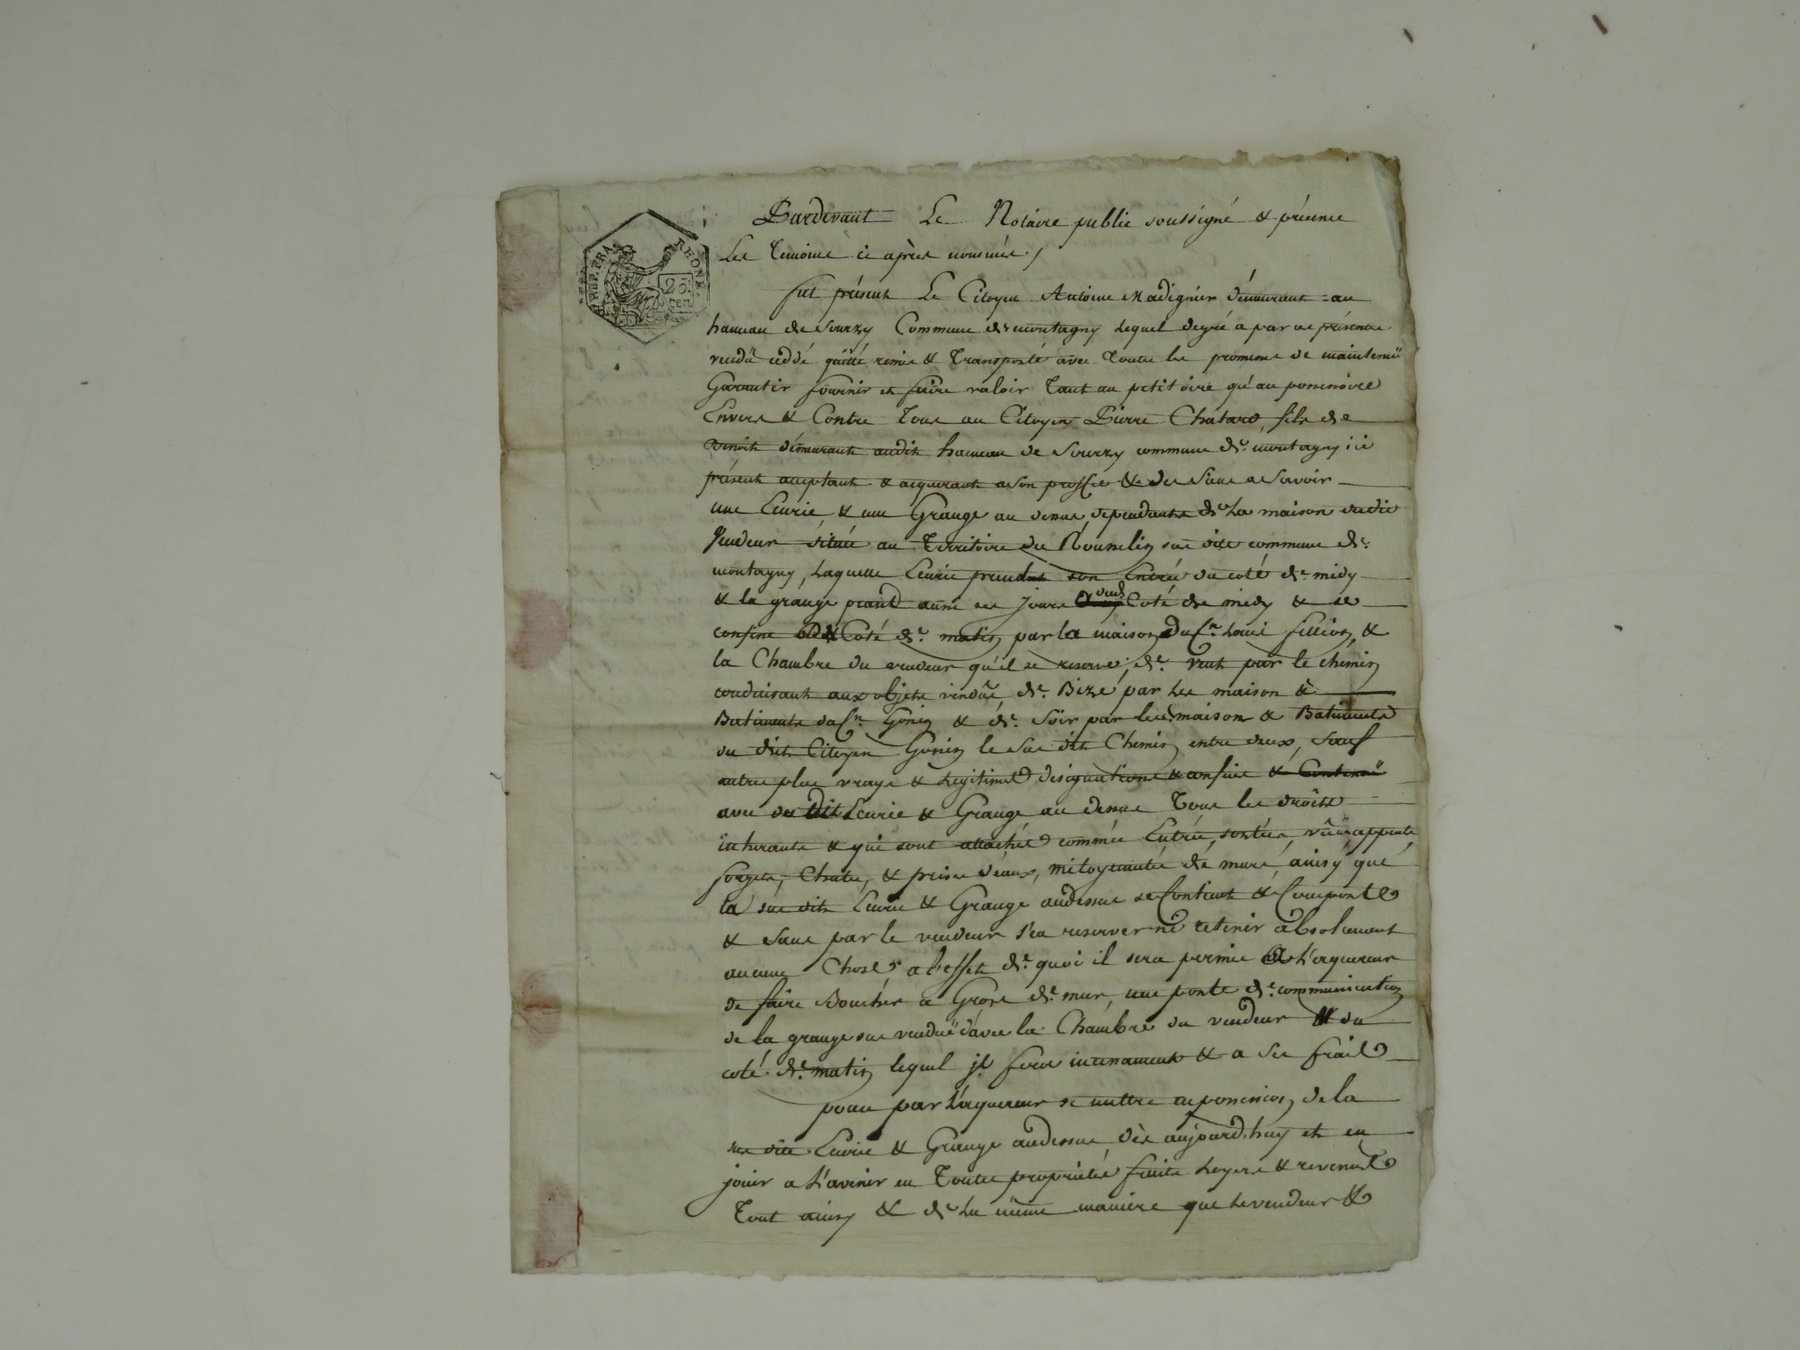 REP. FRA. RHONE.
25 cen.
Pardevant Le Notaire public soussigné & présence
Les Témoins ci après nommés /
fut présent Le Citoyen Antoine Madignier démeurant au
hameau de Sourzy Commune de montagny lequel degré a par ces présentes
vendu ceddé quitté remis & Transporté avec Toutes les promesses de maintenüe
Garantir fournir et faire valoir Tant au petitoire qu'au possessoire
Envers & Contre Tous au Citoyen Pierre Chatard fils de
Benoit démeurant audit hameau de Sourzy commune de montagny ici
présent acceptant & aquerant a son proffit & des siens a Savoir
une Ecurie & une Grange au dessus dependante de La maison dudit
Vendeur située au Territoire du sus dite commune de
montagny, Laquelle Ecurie prendant son Entrée du coté de midy
& la grange prend aussi ses jours dud. Coté de midy & se
confine de Coté de matin par la maison du Cn. Louis fillion, &
la Chambre du vendeur qu'il se reserve; de vent par le chémin
conduisant aux objets vendûs de Bize par Les maison &
Batiments du Cn. Gonin & de Soir par les maison & Batiments
du dit Citoyen Gonin le sus dit Chemin entre deux, Sauf
autres plus vrays & Legitimes désignations & confins & Contenüe
avec des dit Ecurie & Grange au dessus Tous les droits
inhérants & qui sont attachés comme Entrées, sorties, vües, apparts,
forgets, Chutes, & prises d'eaux, mitoyennetés de murs, ainsy qué
la sus dite Ecurie & Grange audessus se Contient & Comporte
& sans par le vendeur s'en reserver né retenir absolument
aucune Chose, a l'effet de quoi il sera permis a L'aquereur
de faire Boucher a Gros de mur, une porte de communication
de la grange sus vendüe d'avec la Chambre du vendeur & du
coté de matin lequel il fera incessament & a ses frais
pour par L'aquereur se mettre en possession de la
sus dite Ecurie & Grange audessus dès aujourd'huy et en
jouir a L'avenir en Toutes propriétés fruits Loyers & revenus
Tout ainsy & de La même manière que Levendeur &